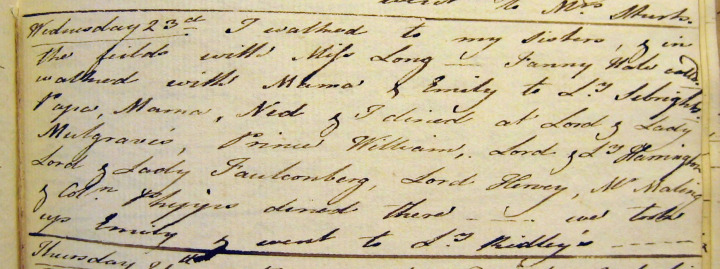 went to Mrs Sturt.
Wednesday 23d. I walked to my sisters, & in
the fields with Miss Long — Fanny Wale called.
walked with Mama & Emily to Ly Sebright
Papa, Mama, Ned & I dined at Lord & Lady
Mulgraves, Prince William, Lord & Ly Harrington
Lord & Lady Faulconberg, Lord Hervey, Mr Maling
& Coln Phipps dined there — we took
up Emily & went to Ly Ridley's —
Thursday 24th